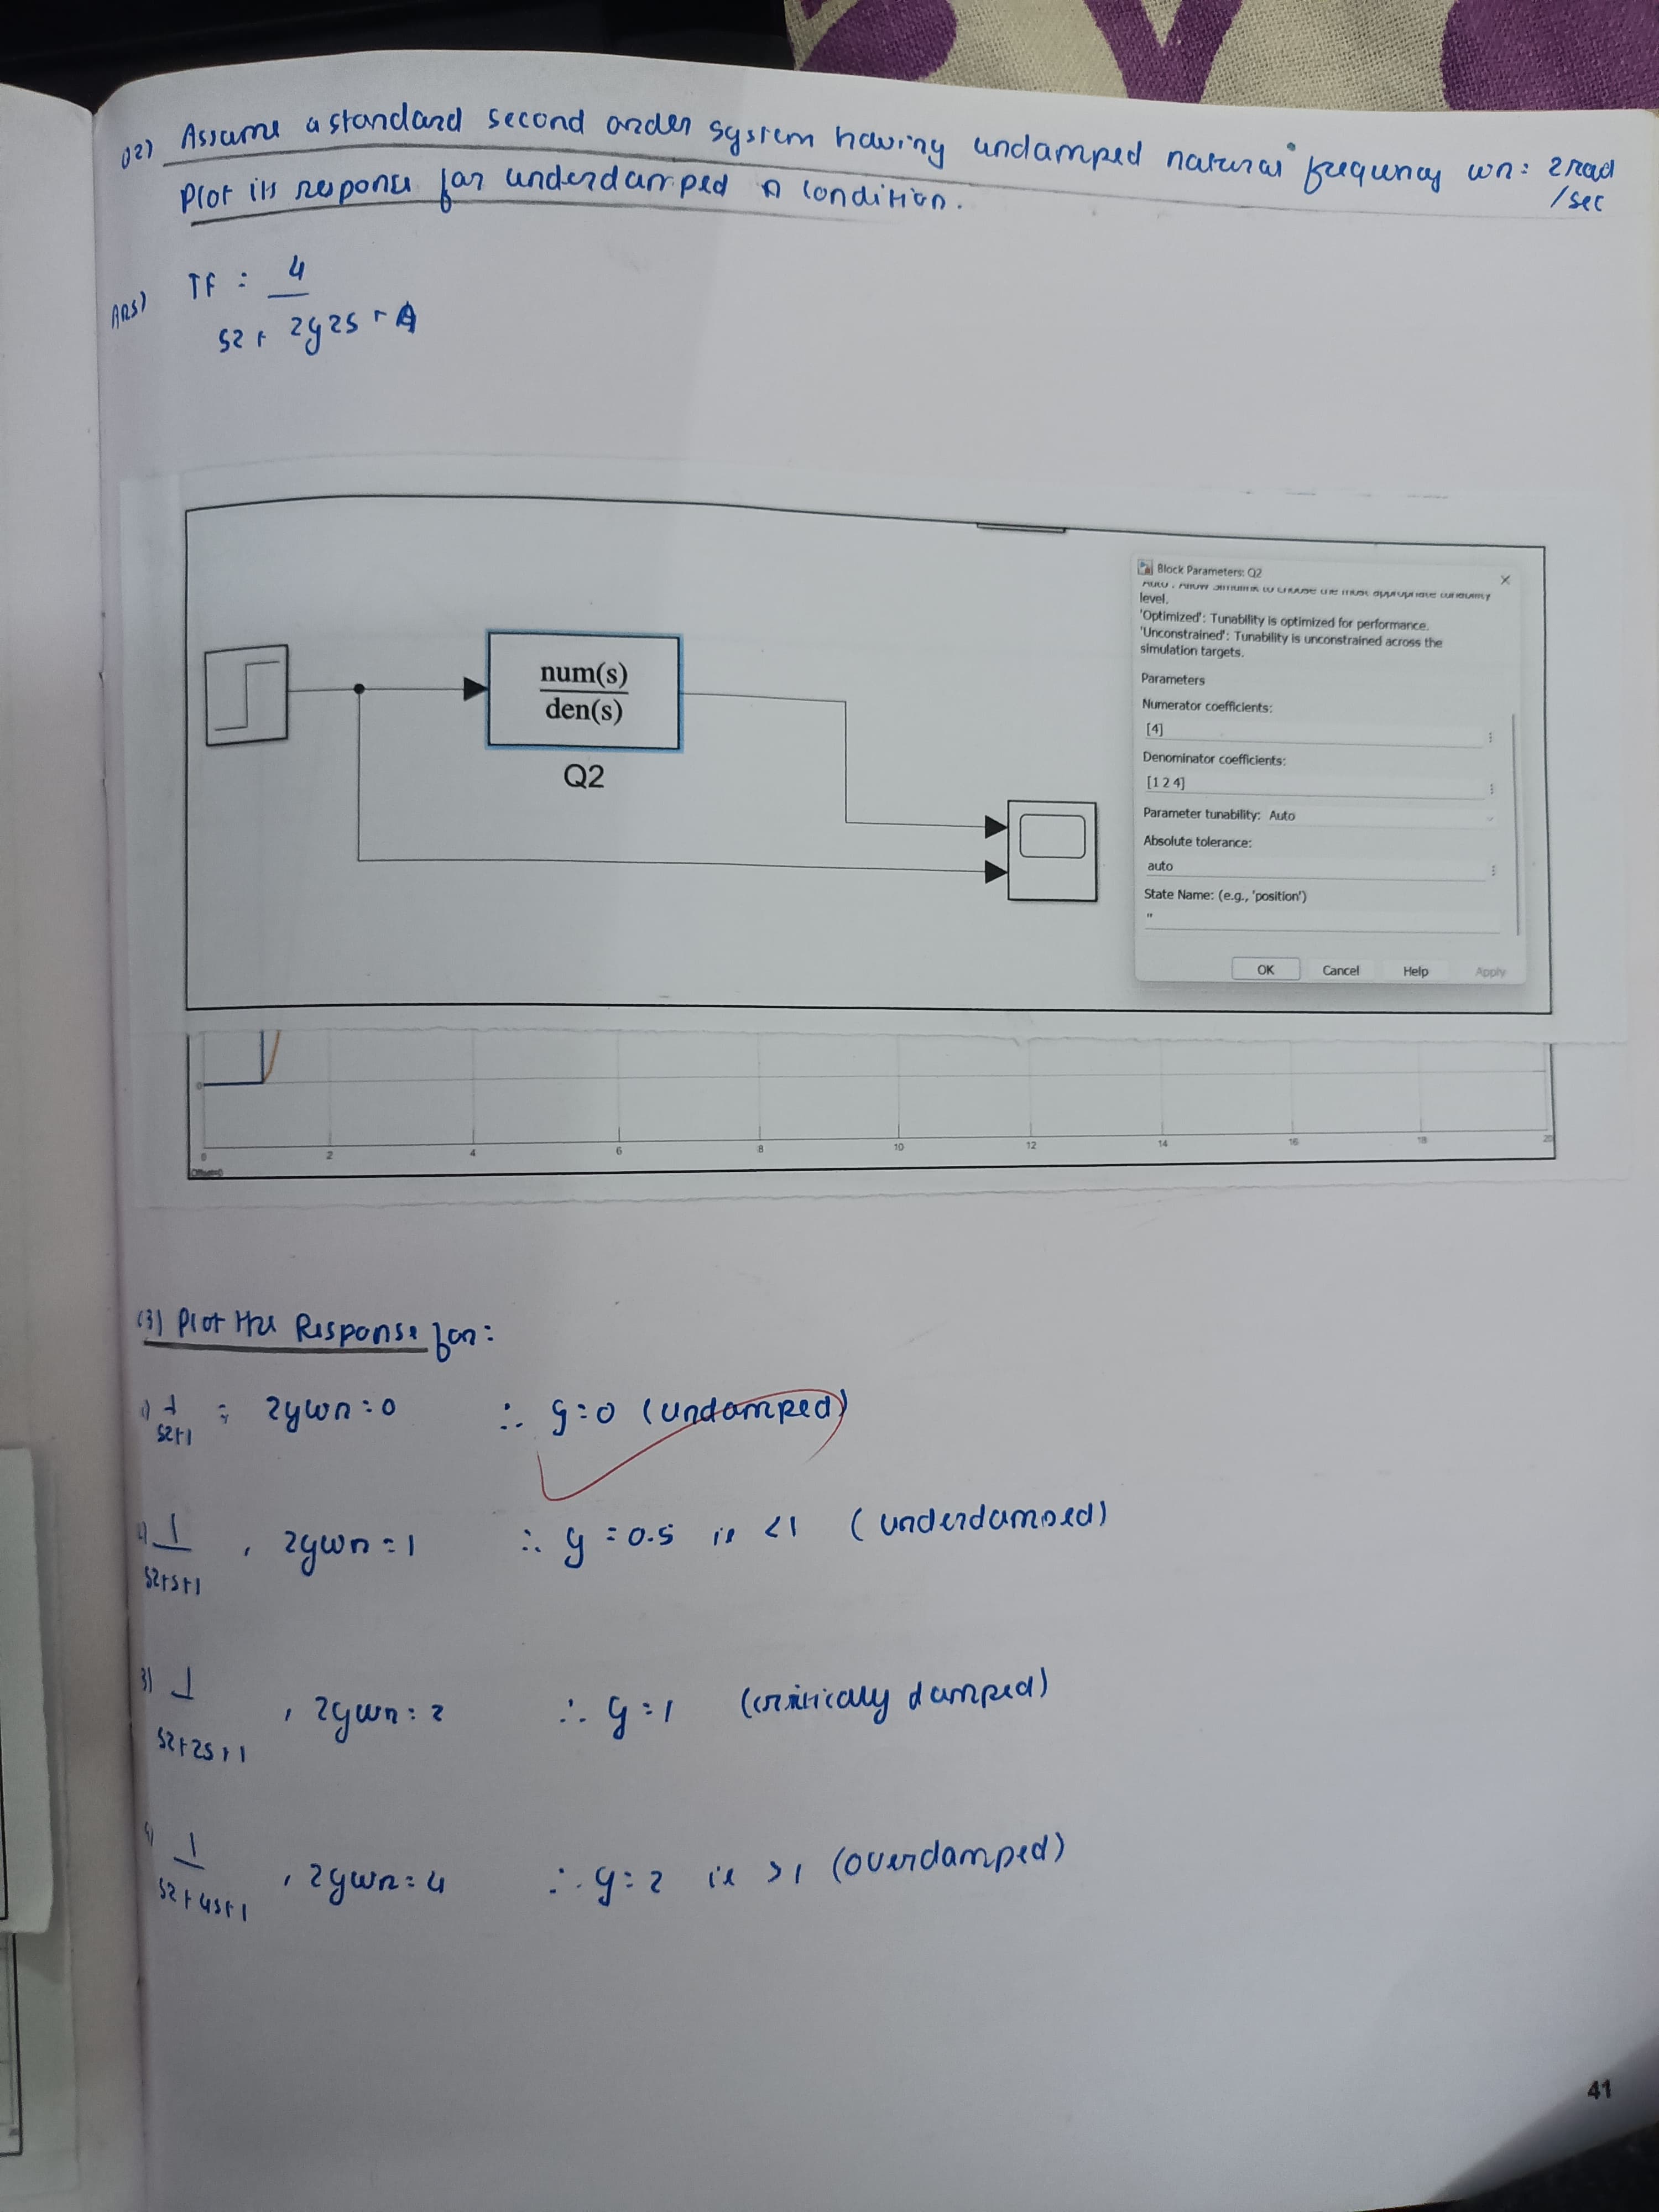 Q2) Assume a standard second order system having undamped natural frequency wn: 2 rad
/sec
Plot its response for underdamped condition.
Ans) TF : 4
s2 + 2ζ2s + 4
Block Parameters: Q2
'Auto': Allow Simulink to choose the most appropriate tunability
level.
'Optimized': Tunability is optimized for performance.
'Unconstrained': Tunability is unconstrained across the
simulation targets.
Parameters
Numerator coefficients:
[4]
Denominator coefficients:
[1 2 4]
Parameter tunability: Auto
Absolute tolerance:
auto
State Name: (e.g., 'position')
''
OK Cancel Help Apply
num(s)
den(s)
Q2
0
0 2 4 6 8 10 12 14 16 18 20
Offset=0
(3) Plot the Response for:
1) 1 : 2ζwn = 0 ∴ ζ = 0 (undamped)
s2+1
2) 1 , 2ζwn = 1 ∴ ζ = 0.5 ie <1 (underdamped)
s2+s+1
3) 1 , 2ζwn = 2 ∴ ζ = 1 (critically damped)
s2+2s+1
4) 1 , 2ζwn = 4 ∴ ζ = 2 ie >1 (overdamped)
s2+4s+1
41